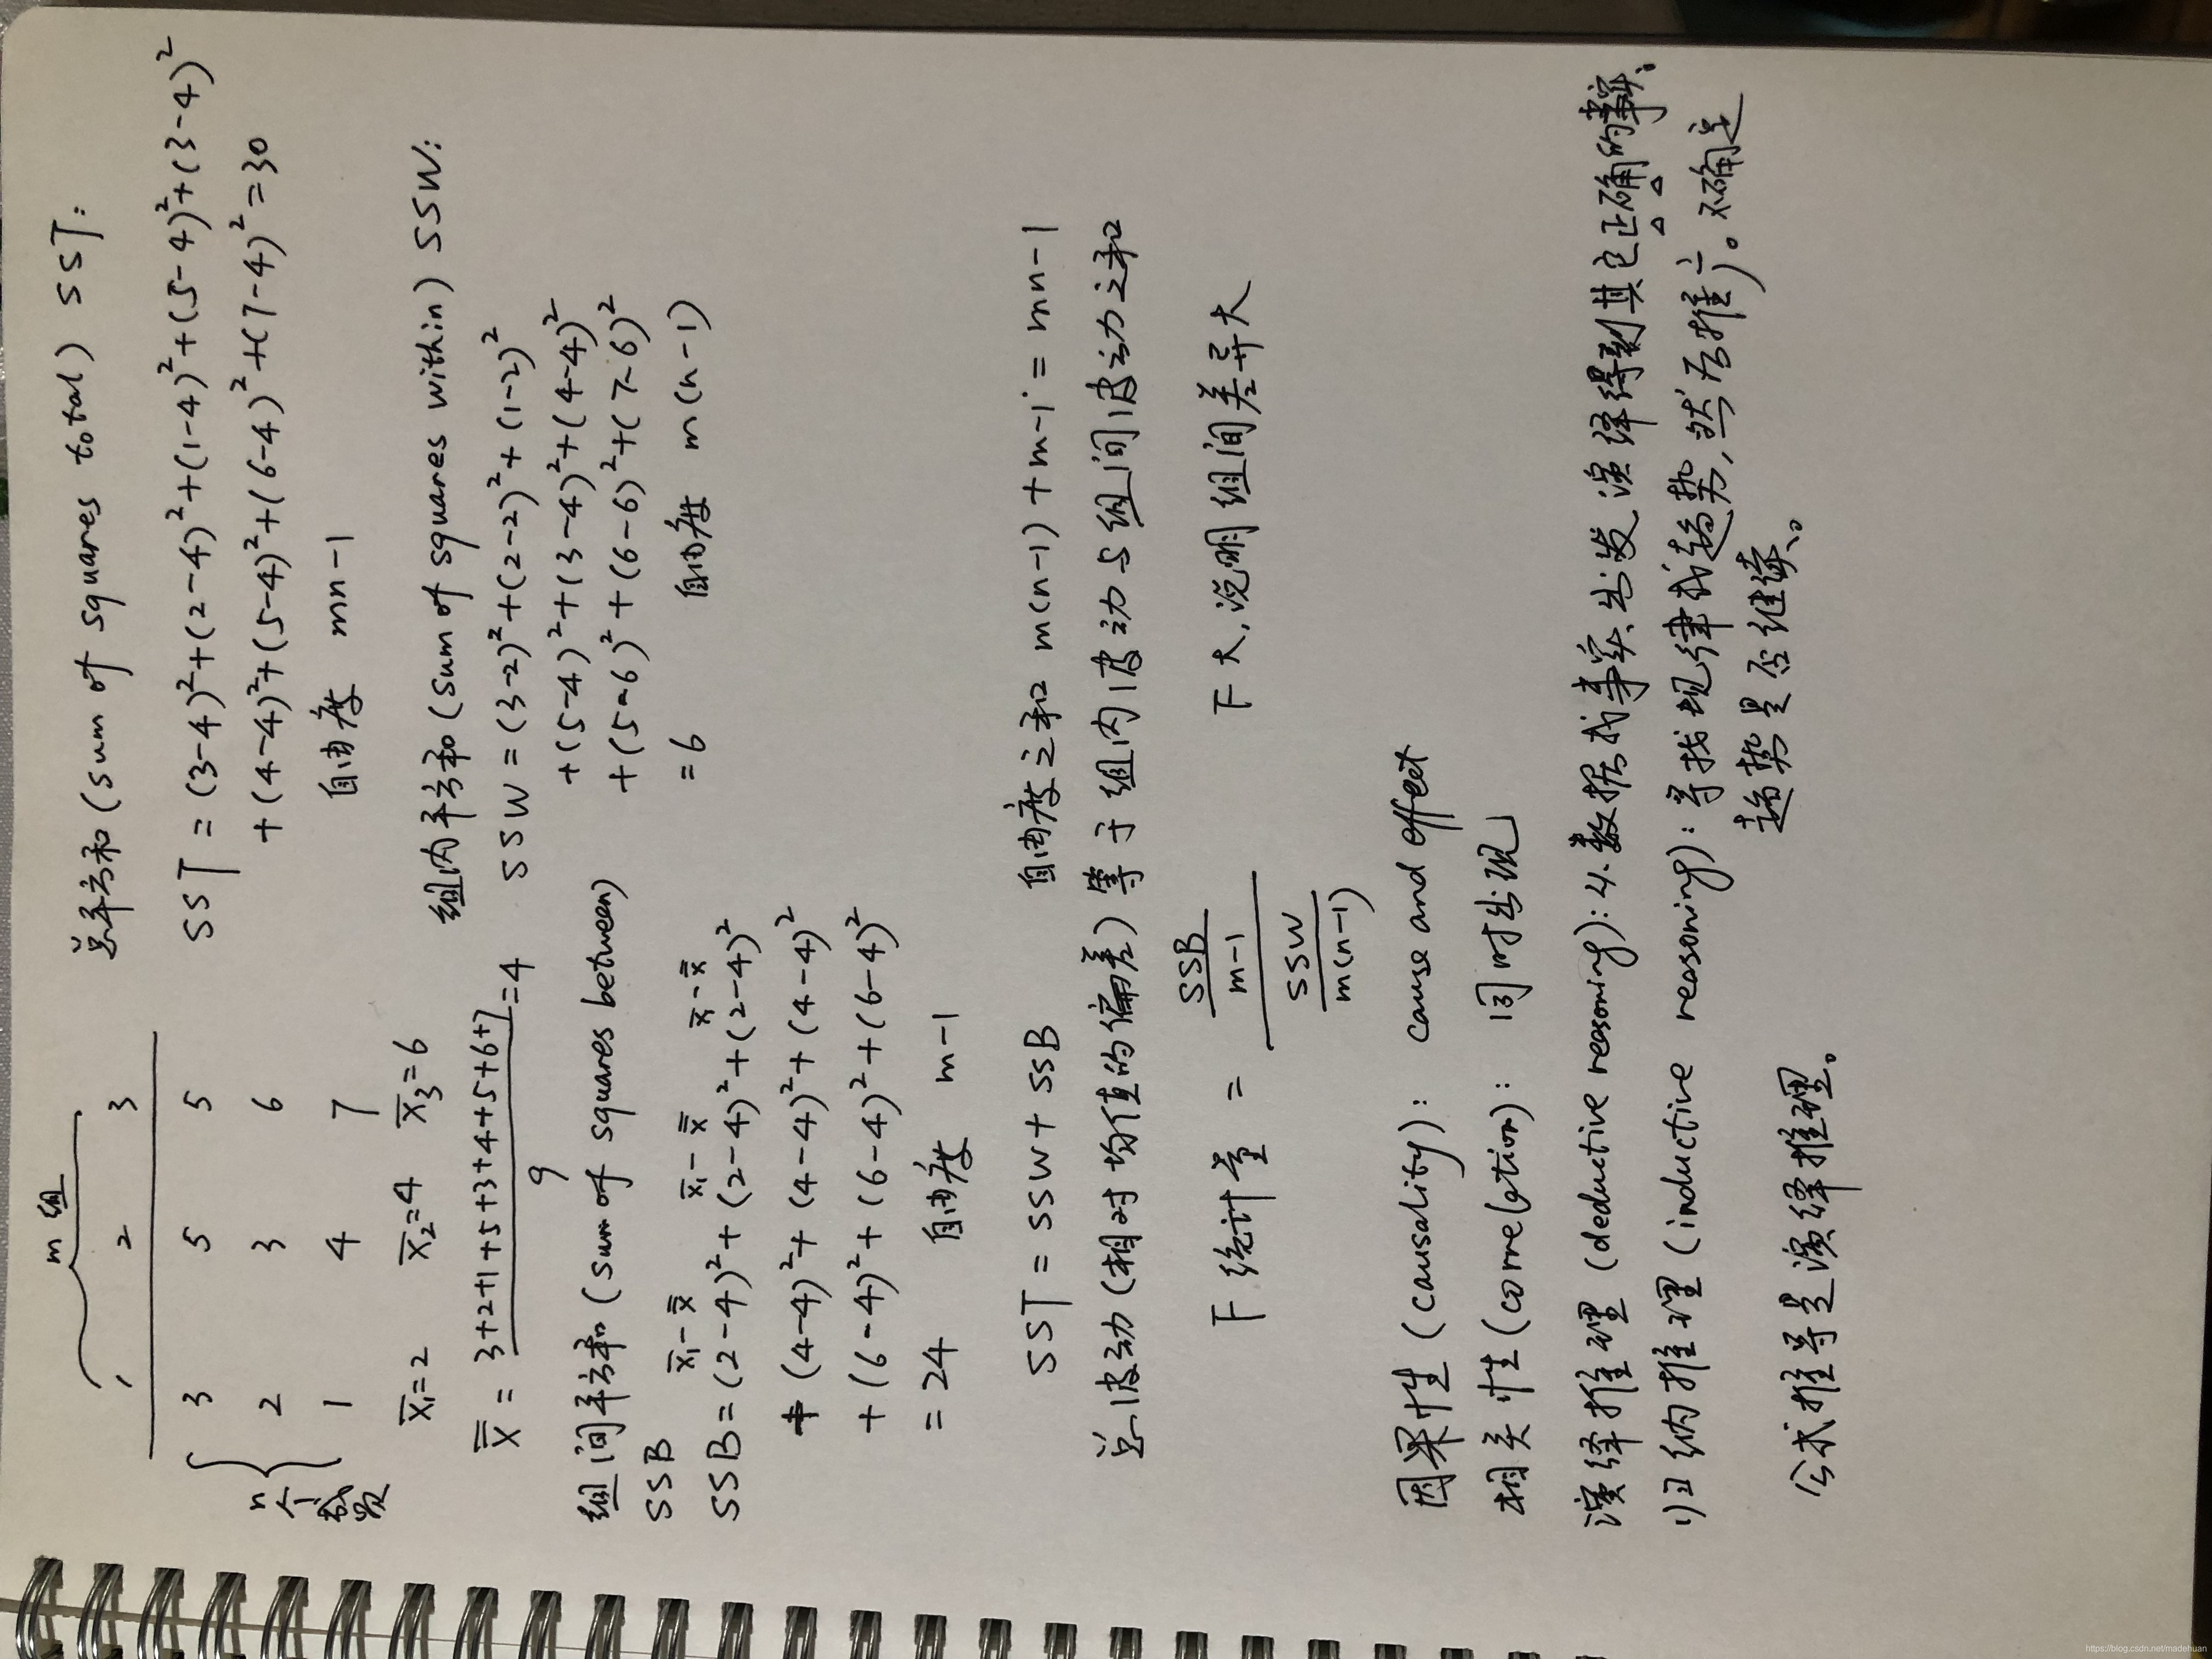 m组
1 2 3
3 5 5
2 3 6
1 4 7
n个
x̄₁=2 x̄₂=4 x̄₃=6
x̿ = 3+2+1+5+3+4+5+6+7 / 9 = 4
总平方和 (sum of squares total) SST:
SST = (3-4)²+(2-4)²+(1-4)²+(5-4)²+(3-4)²
+(4-4)²+(5-4)²+(6-4)²+(7-4)²=30
自由度 mn-1
组内平方和 (sum of squares within) SSW:
SSW = (3-2)²+(2-2)²+(1-2)²
+(5-4)²+(3-4)²+(4-4)²
+(5-6)²+(6-6)²+(7-6)²
=6 自由度 m(n-1)
组间平方和 (sum of squares between)
SSB
x̄₁-x̿ x̄₁-x̿ x̄₁-x̿
SSB=(2-4)²+(2-4)²+(2-4)²
+(4-4)²+(4-4)²+(4-4)²
+(6-4)²+(6-4)²+(6-4)²
=24 自由度 m-1
SST = SSW + SSB 自由度之和 m(n-1)+m-1 = mn-1
总波动(相对均值的偏差)等于组内波动与组间波动之和
F统计量 = SSB/m-1 / SSW/m(n-1) F大,说明组间差异大
因果性 (causality): cause and effect
相关性 (correlation): 同时出现
演绎推理 (deductive reasoning): 从数据或事实出发 演绎得到其它正确的事实。
归纳推理 (inductive reasoning): 寻找规律或趋势,然后推广。不确定
趋势是否继续。
公式推导是演绎推理。
https://blog.csdn.net/madehuan